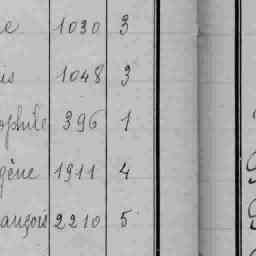 e 1030 3
us 1048 3
ophile 396 1
gène 1911 4
ançois 2210 5